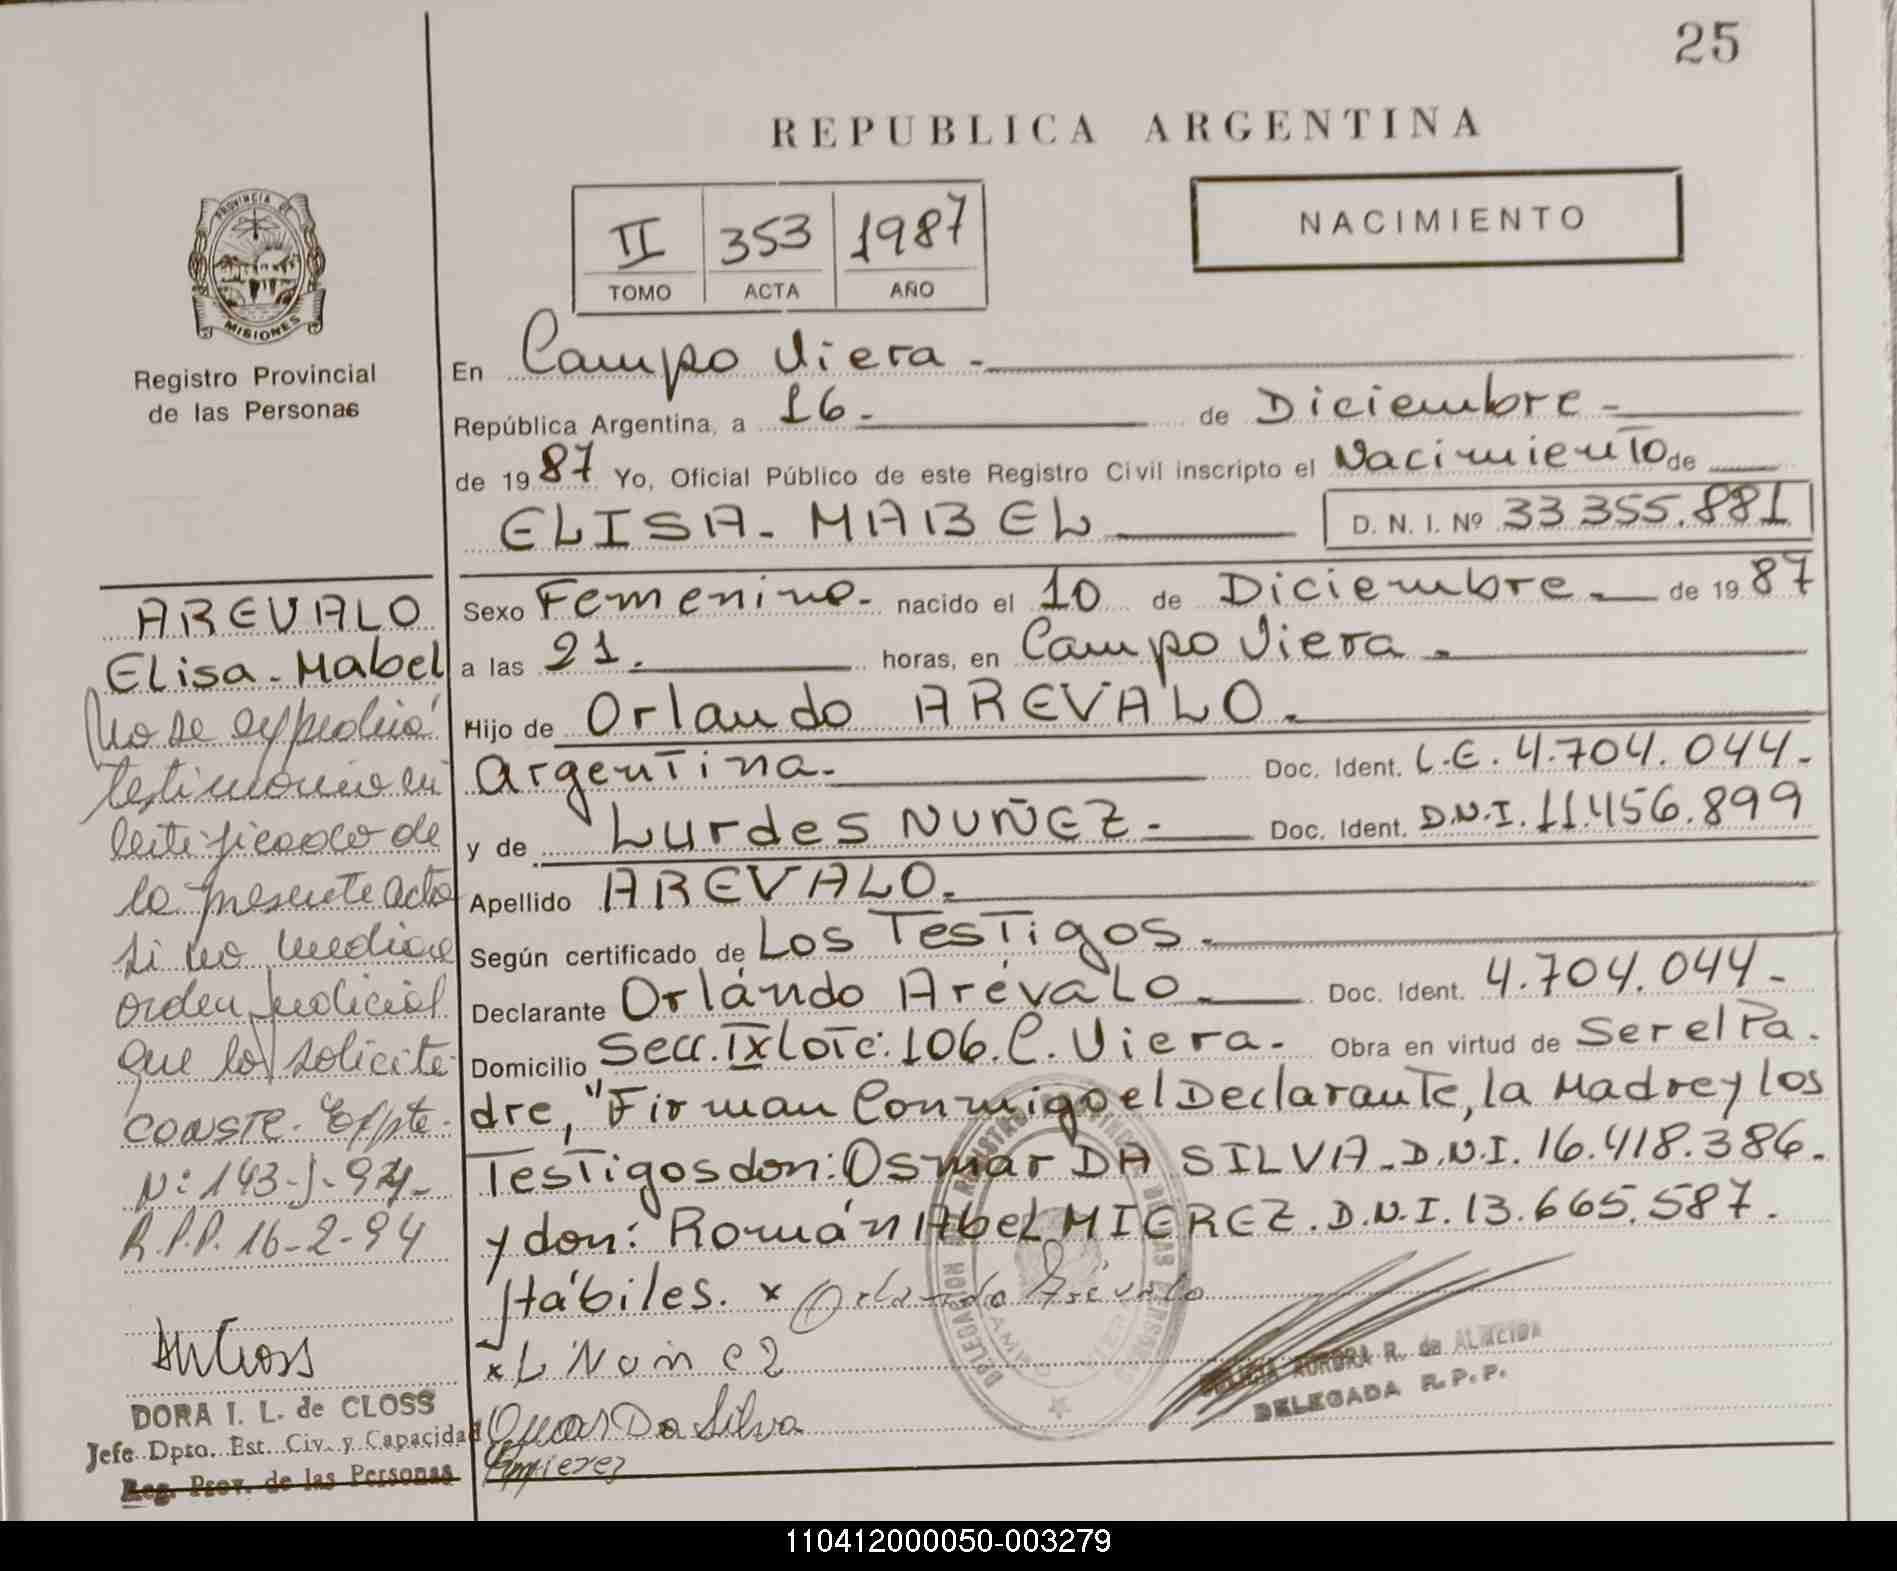 25
REPUBLICA ARGENTINA
PROVINCIA DE
MISIONES
Registro Provincial
de las Personas
II 353 1987
TOMO ACTA AÑO
NACIMIENTO
En Campo Viera.-
República Argentina, a 16.- de Diciembre.-
de 1987 Yo, Oficial Público de este Registro Civil inscripto el Nacimiento de
ELISA-MABEL D. N. I. Nº 33.355.881
Sexo Femenino.- nacido el 10 de Diciembre.- de 1987
a las 21. horas, en Campo Viera.-
Hijo de Orlando AREVALO.-
Argentina.- Doc. Ident. L.E. 4.704.044.-
y de Lurdes NUÑEZ.- Doc. Ident. D.N.I. 11.456.899
Apellido AREVALO.-
Según certificado de Los Testigos.-
Declarante Orlándo Arévalo.- Doc. Ident. 4.704.044.-
Domicilio Secc. IX lote: 106. C. Viera.- Obra en virtud de Ser el Pa.
dre, "Firman Conmigo el Declarante, la Madre y los
Testigos don: Osmar DA SILVA.- D.N.I. 16.418.386.
y don: Román Abel MIEREZ. D.N.I. 13.665.587.
Hábiles. x Orlando Arévalo
x L Nuñez
Osmar Da Silva
Mierez
AREVALO
Elisa-Mabel
No se expedirá
testimonio ni
certificado de
la presente acta
si no media
orden judicial
que lo solicite.
CONSTE. Expte.
Nº: 143-J-94-
R.P.P. 16-2-94
DORA I. L. de CLOSS
Jefe Dpto. Est. Civ. y Capacidad
Reg. Prov. de las Personas
AURORA R. de ALMEIDA
DELEGADA R.P.P.
110412000050-003279